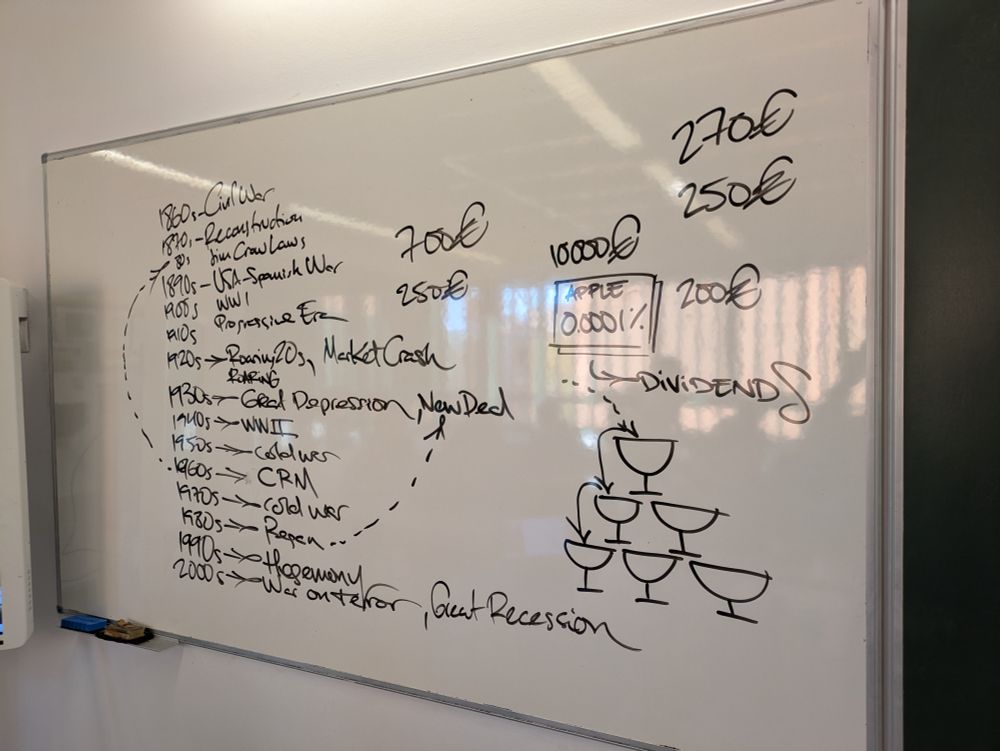 1860s-Civil War
1870s-Reconstruction
80s Jim Crow Laws
1890s-USA-Spanish War
1900s WW1
1910s Progressive Era
1920s→Roaring20s, Market Crash
ROARING
1930s→Great Depression, New Deal
1940s→WWII
1950s→cold war
1960s→CRM
1970s→cold war
1980s→Regan
1990s→Hegemony
2000s→War on terror, Great Recession
700€
250€
10000€
APPLE
0.0001%
DIVIDENDS
270€
250€
200€